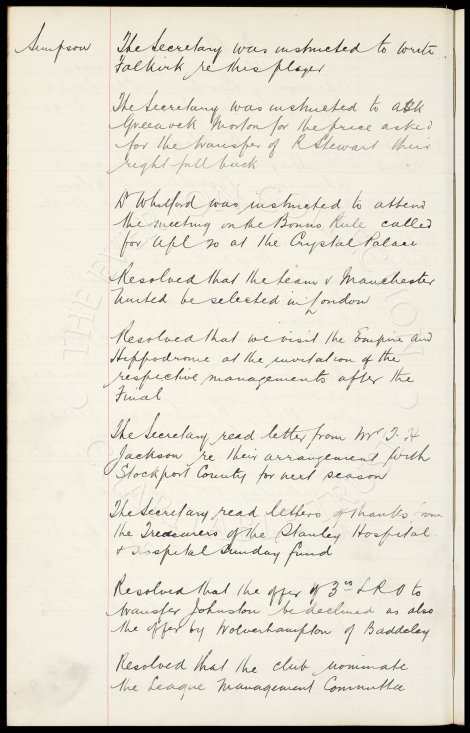 Simpson The Secretary was instructed to write
Falkirk re this player
The Secretary was instructed to ask
Greenock Morton for the price asked
for the transfer of R Stewart their
right full back
Dr Whitford was instructed to attend
the meeting on the Bonus Rule called
for Apl 20 at the Crystal Palace
Resolved that the team v Manchester
United be selected in London
Resolved that we visit the Empire and
Hippodrome at the invitation of the
respective managements after the
Final
The Secretary read letter from Mr T. H
Jackson re their arrangement with
Stockport County for next season
The Secretary read letters of thanks from
the Treasurers of the Stanley Hospital
& Hospital Sunday fund
Resolved that the offer of 3rd L R O to
transfer Johnston be declined as also
the offer by Wolverhampton of Baddeley
Resolved that the club nominate
the League Management Committee